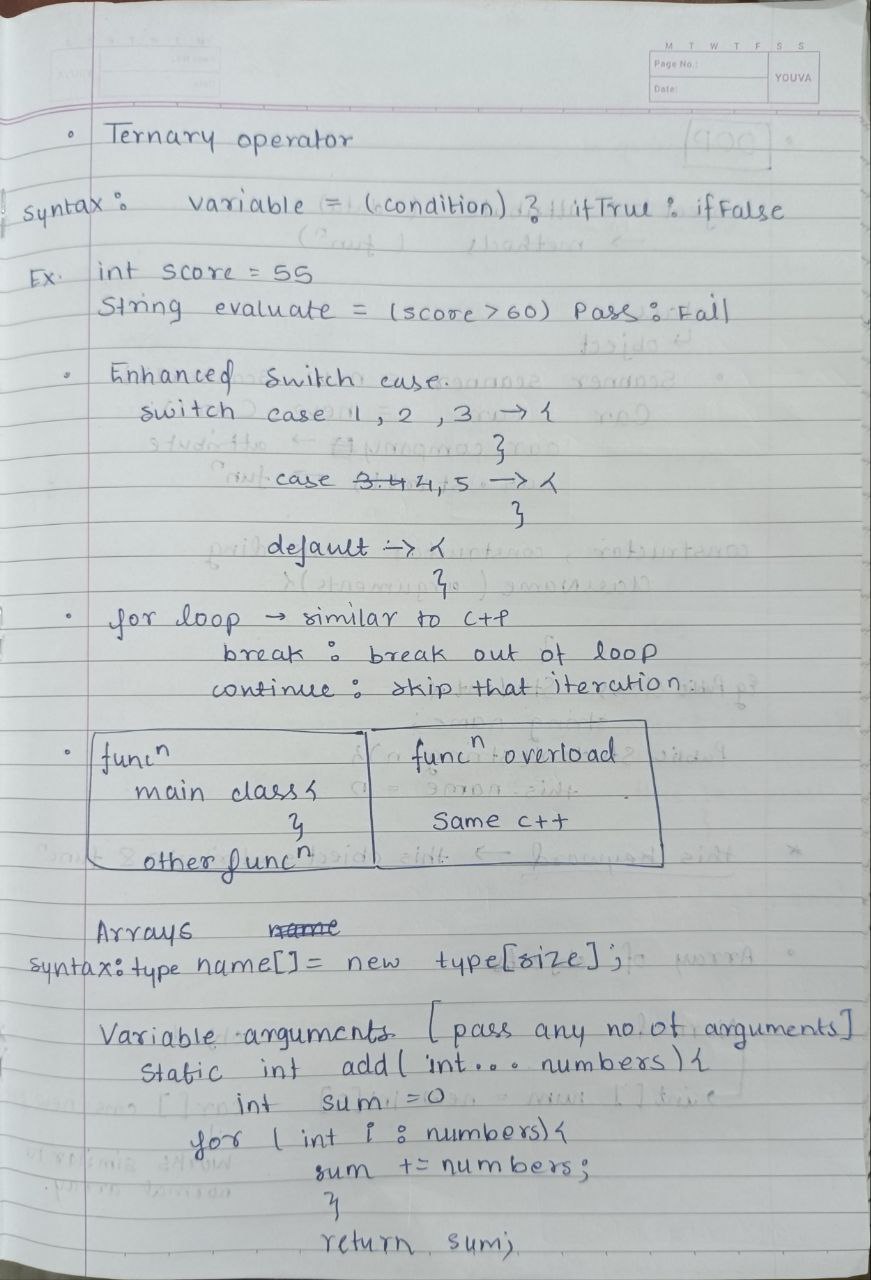 M T W T F S S
Page No.:
Date:
YOUVA
• Ternary operator
Syntax: variable = (condition) ? ifTrue : ifFalse
Ex. int score = 55
String evaluate = (score > 60) Pass : Fail
• Enhanced switch case.
switch case 1, 2, 3 → {
}
case 3.4 4, 5 → {
}
default → {
}
• for loop → similar to C++
break : break out of loop
continue : skip that iteration.
• funcⁿ
main class {
}
other funcⁿ
funcⁿ overload
Same c++
Arrays name
syntax: type name[] = new type[size];
Variable arguments [pass any no. of arguments]
Static int add( int... numbers) {
int sum = 0
for (int i : numbers) {
sum += numbers;
}
return sum;